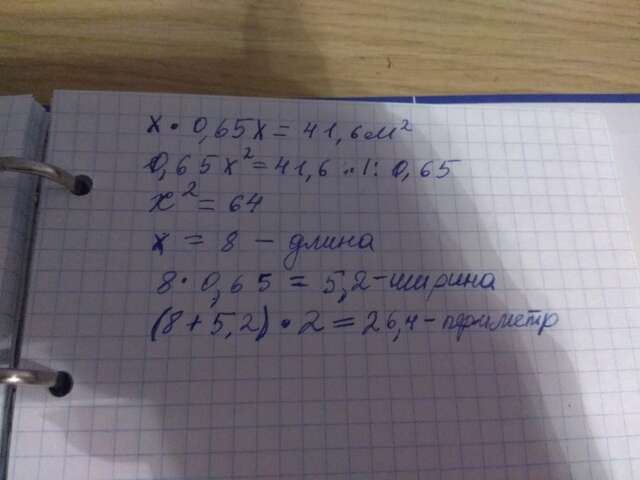 x · 0,65x = 41,6 м²
0,65x² = 41,6 | : 0,65
x² = 64
x = 8 – длина
8 · 0,65 = 5,2 – ширина
(8 + 5,2) · 2 = 26,4 – периметр